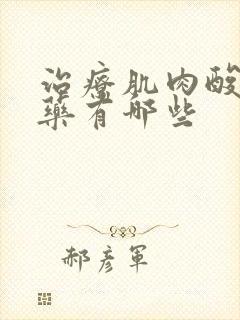 治療肌肉酸
藥有哪些
郝彥軍